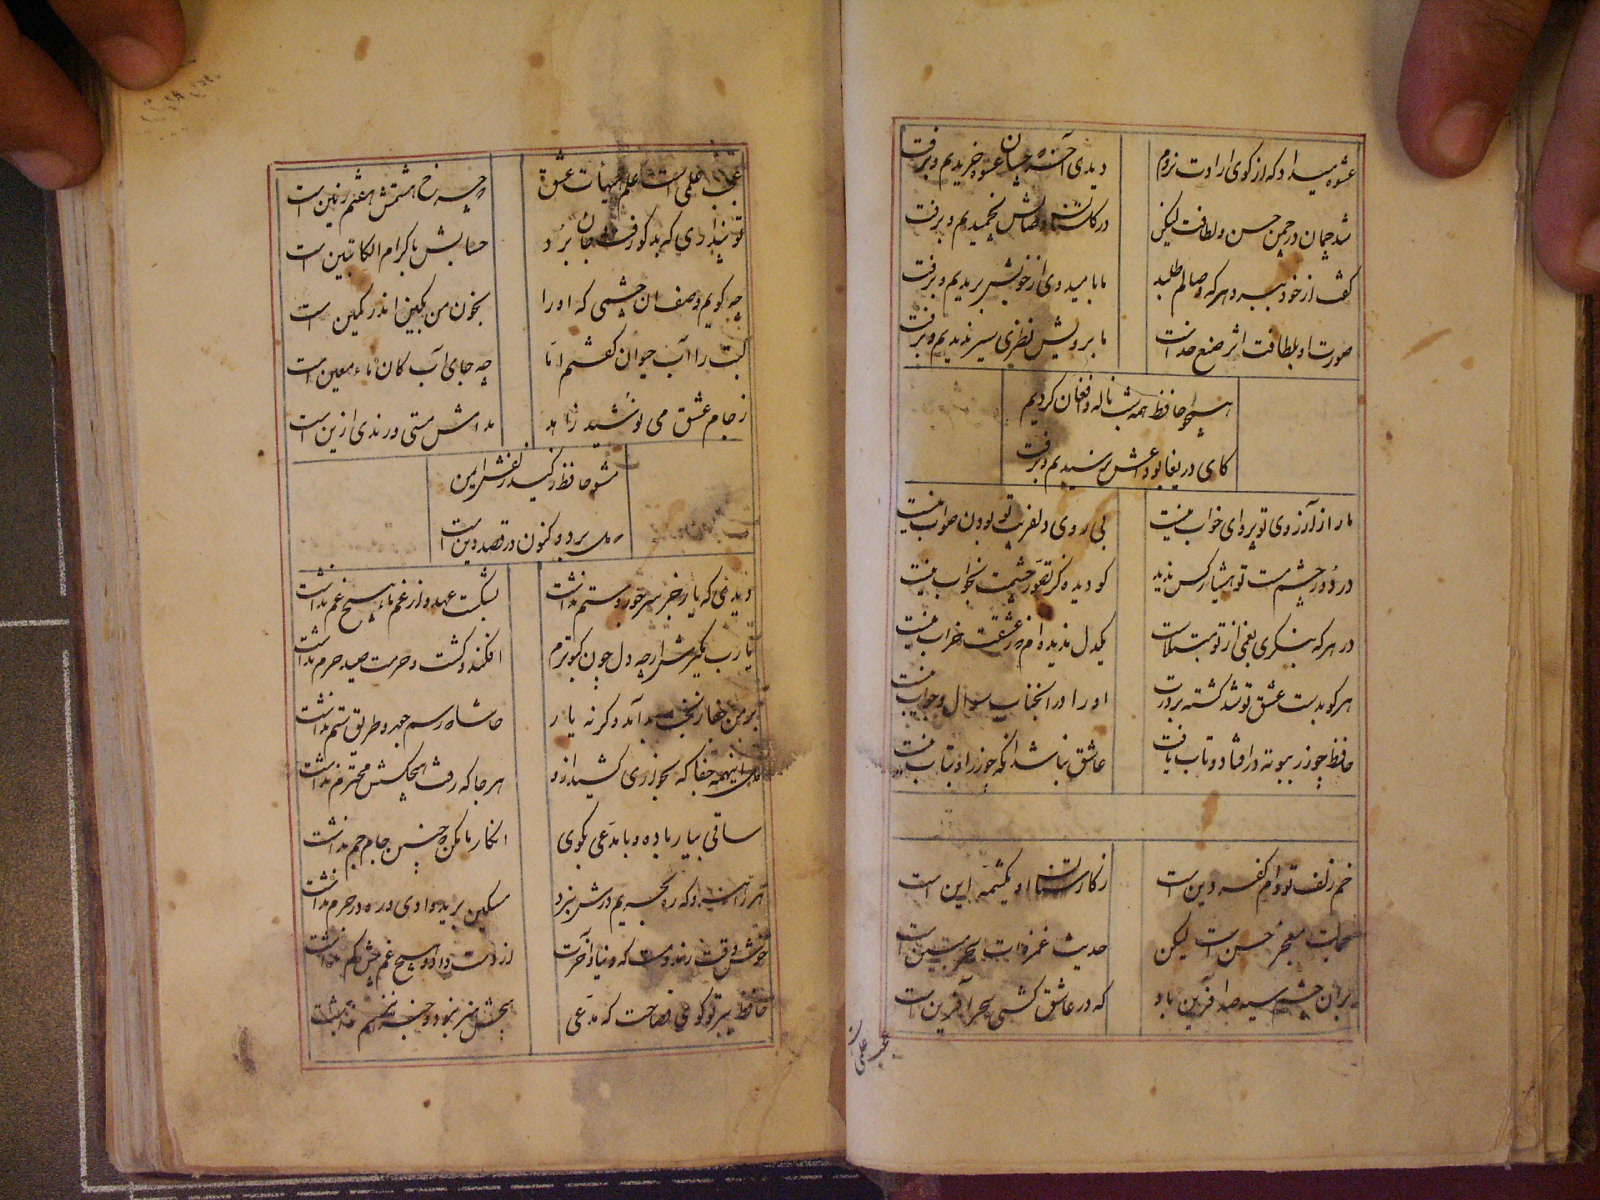 عشوه میداد که از کوی ارادت نروم دیدی آخر که چسان عشوه خریدیم و برفت
شد چمان در چمن حسن و لطافت لیکن در گلستان وصالش نچمیدیم و برفت
گفت از خود ببرد هر که وصالم طلبد ما بامیدوی از خویش بریدیم و برفت
صورت او بلطافت اثر صنع خداست ما برویش نظری سیر ندیدیم و برفت
همچو حافظ همه شب ناله و افغان کردیم
کای دریغا بوداعش نرسیدیم و برفت
ما را ز آرزوی تو پروای خواب نیست بی روی دلفریب تو بودن صواب نیست
در دور چشم مست تو هشیار کس ندید کو دیده کز تصور چشمت بخواب نیست
در هر که بنگری بغمی از تو مبتلاست یکدل ندیده ام که ز عشقت خراب نیست
هر کو بدست عشق تو شد کشته بر درت او را در آن جناب سوال و جواب نیست
حافظ چو زر ببوته در افتاد و تاب یافت عاشق نباشد آنکه چو زر او بتاب نیست
خم زلف تو دام کفر و دین است ز کارستان او یک شمه این است
جمالت معجز حسن است لیکن حدیث غمزه ات سحر مبین است
بر آن چشم سیه صد آفرین باد که در عاشق کشی سحر آفرین است
عجب علمی
عجب علمی است علم هیأت عشق که چرخ هشتمش هفتم زمین است
تو پنداری که بدگو رفت و جان برد حسابش با کرام الکاتبین است
چه گویم وصف آن چشمی که او را بخون من بکین اندر کمین است
لبت را آب حیوان گفتم اما چه جای آب کان ماء معین است
ز جام عشق می نوشید زاهد مدامش مستی و رندی ازین است
مشو حافظ ز کید زلفش ایمن
که دل برد و کنون در قصد دین است
دیدی که یار جز سر جور و ستم نداشت بشکست عهد و از غم ما هیچ غم نداشت
یا رب مگیرش ار چه دل چون کبوترم افکند و کشت و حرمت صید حرم نداشت
بر من جفا ز بخت بد آمد وگرنه یار حاشا که رسم جور و طریق ستم نداشت
با اینهمه جفا که بخواری کشید ازو هر جا که رفت هیچکسش محترم نداشت
ساقی بیار باده و با مدعی بگوی انکار ما مکن که چنین جام جم نداشت
هر راهرو که ره بحریم درش نبرد مسکین برید وادی و ره در حرم نداشت
خوش وقت رند مست که دنیا و آخرت از دست داد و هیچ غم بیش و کم نداشت
حافظ ببر تو گوی فصاحت که مدعی هیچش هنر نبود و خبر نیز هم نداشت